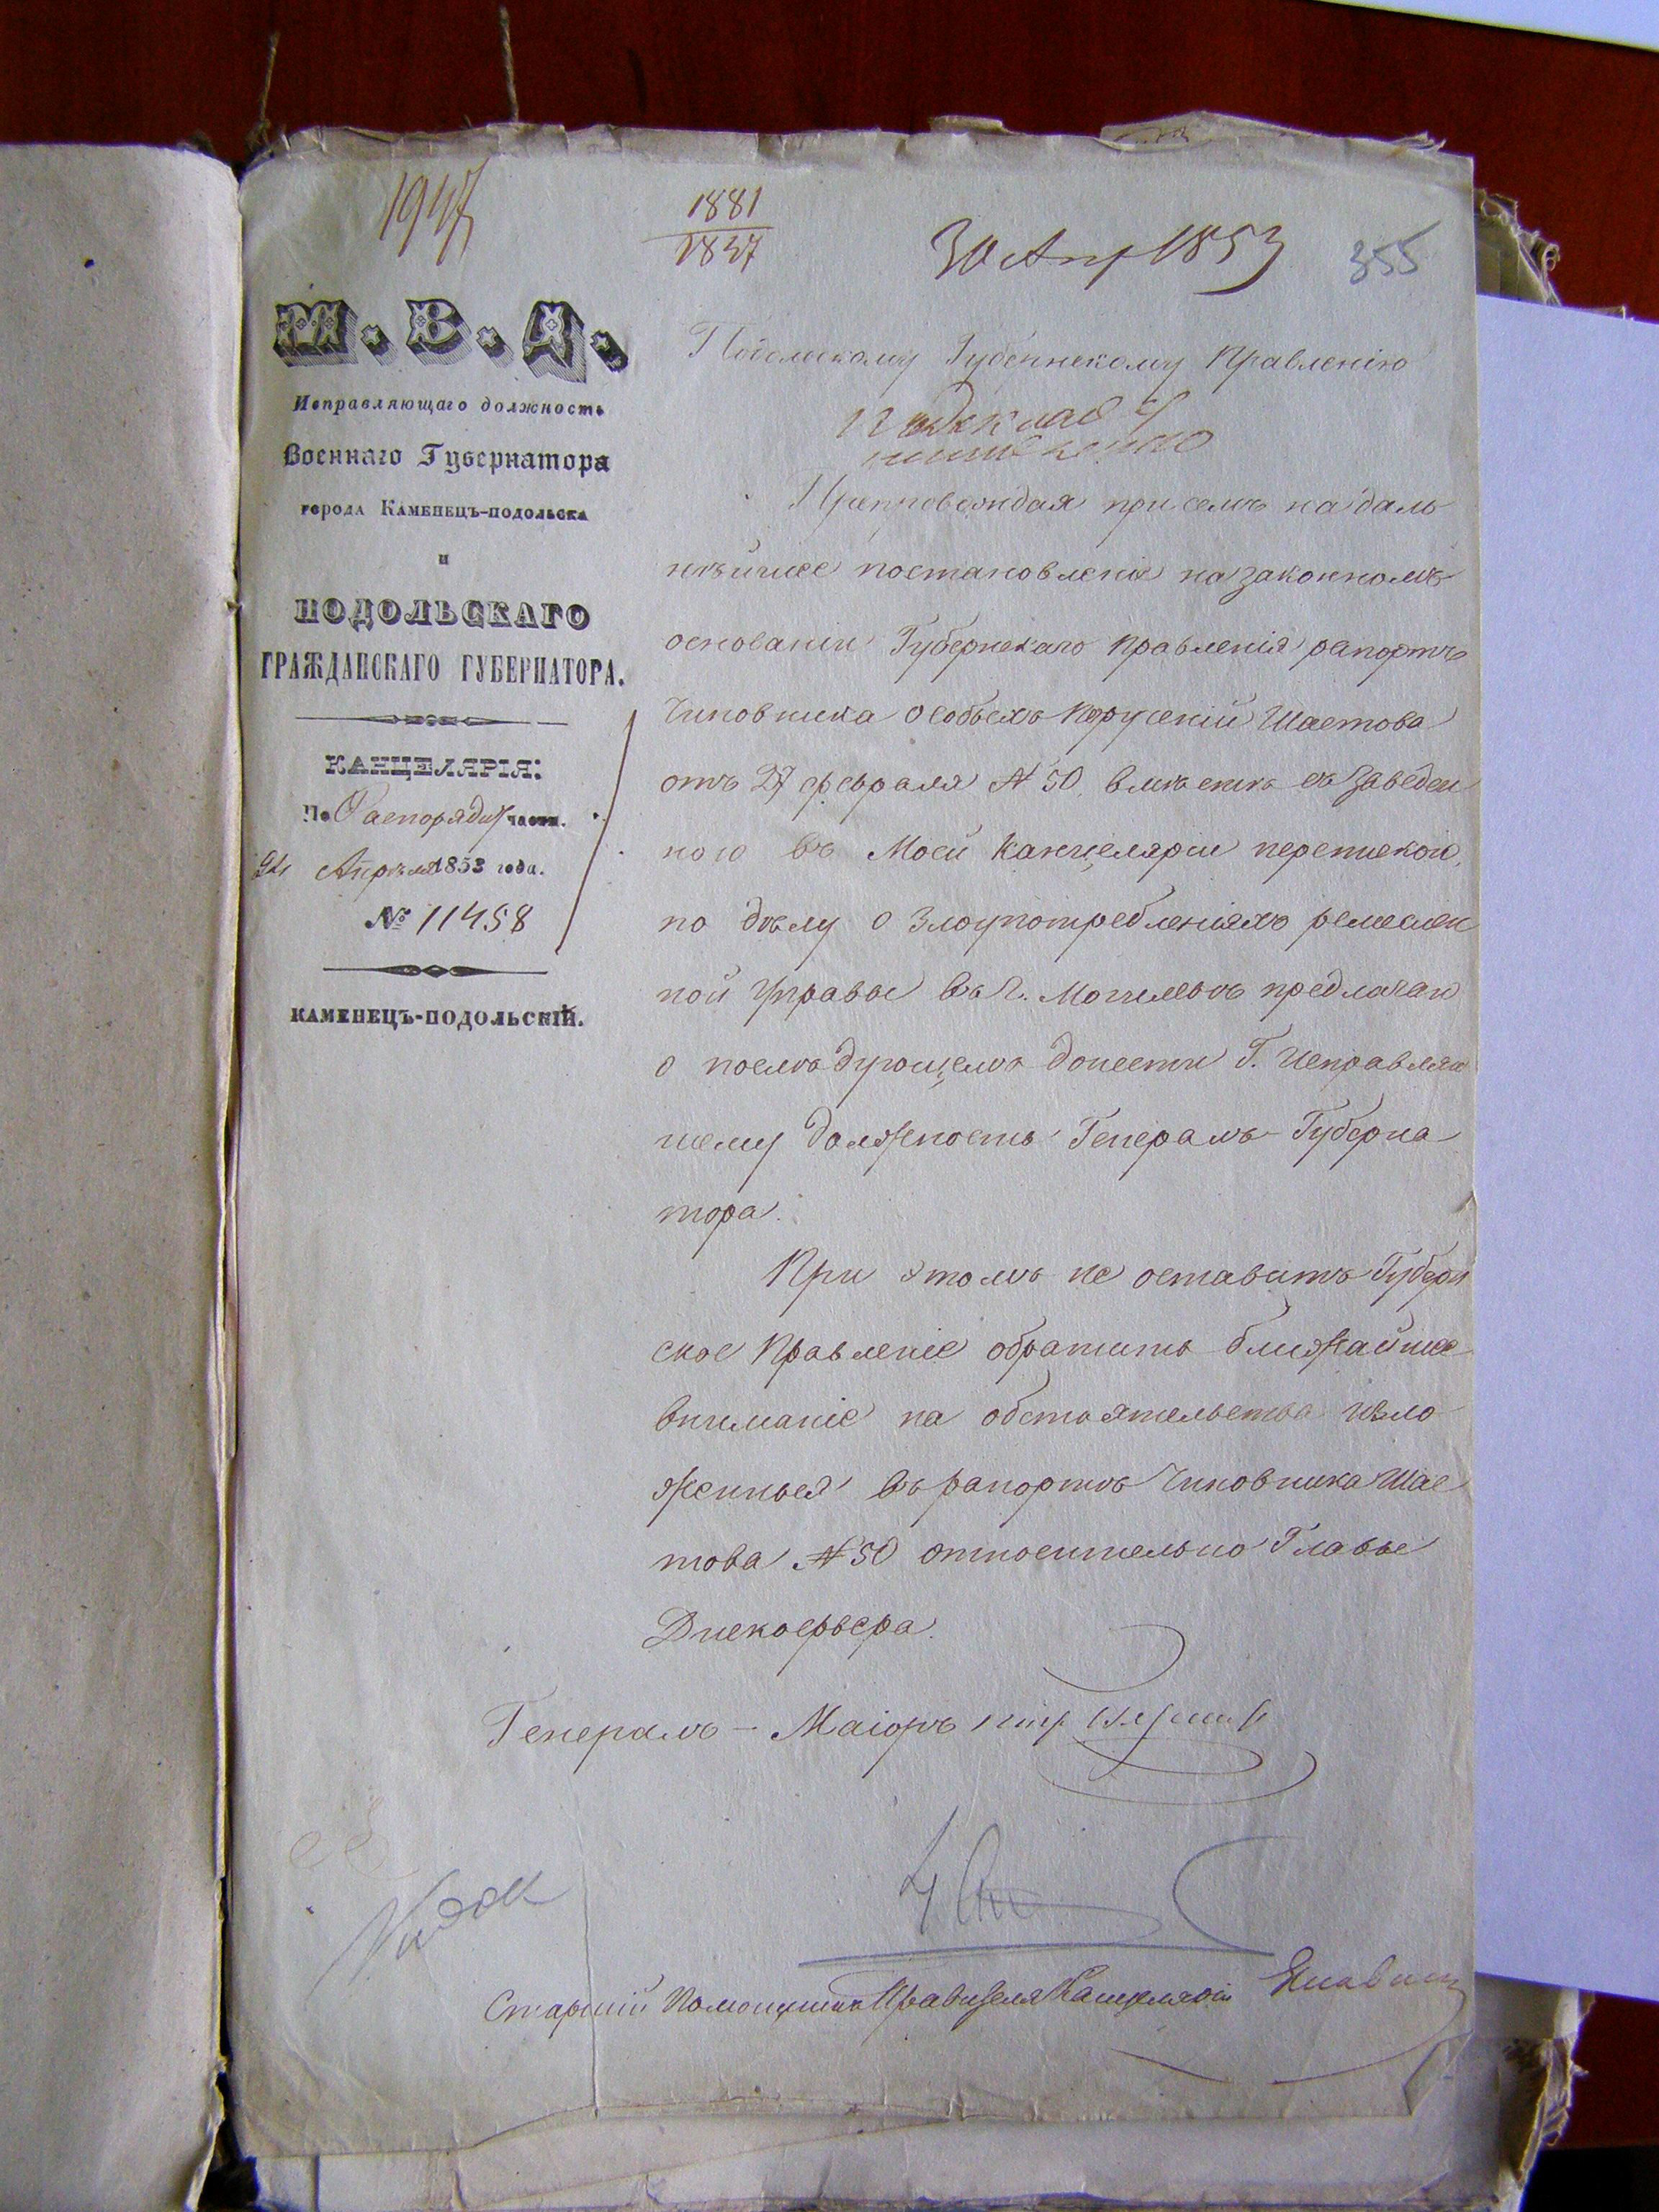 1947
1881
1837
30 Апр 1853
355
М. В. Д.
Исправляющаго должность
Военнаго Губернатора
города Каменецъ-подольска
и
ПОДОЛЬСКАГО
ГРАЖДАНСКАГО ГУБЕРНАТОРА.
КАНЦЕЛЯРІЯ:
По Распоряди части.
24 Апрѣля 1853 года.
№ 11458
КАМЕНЕЦЪ-ПОДОЛЬСКІЙ.
Подольскому Губернскому Правленію
Препровождая при семъ на даль
нѣйшее постановленіе на законномъ
основаніи Губернскаго Правленія рапортъ
Чиновника особыхъ порученій Шастова
отъ 27 февраля № 50, вмѣстѣ съ заведен
ною въ Моей Канцеляріи перепискою,
по дѣлу о злоупотребленіяхъ ремеслен
ной Управы въ г. Могилевѣ предлагаю
о послѣдующемъ донести Г. Исправляю
щему должность Генералъ-Губерна
тора.
При этомъ не оставитъ Губерн
ское Правленіе обратить ближайшее
вниманіе на обстоятельства изло
женныя въ рапортѣ Чиновника Шас
това № 50 относительно Главы
Дискофера.
Генералъ-Маіоръ
Старшій Помощникъ Правителя Канцеляріи